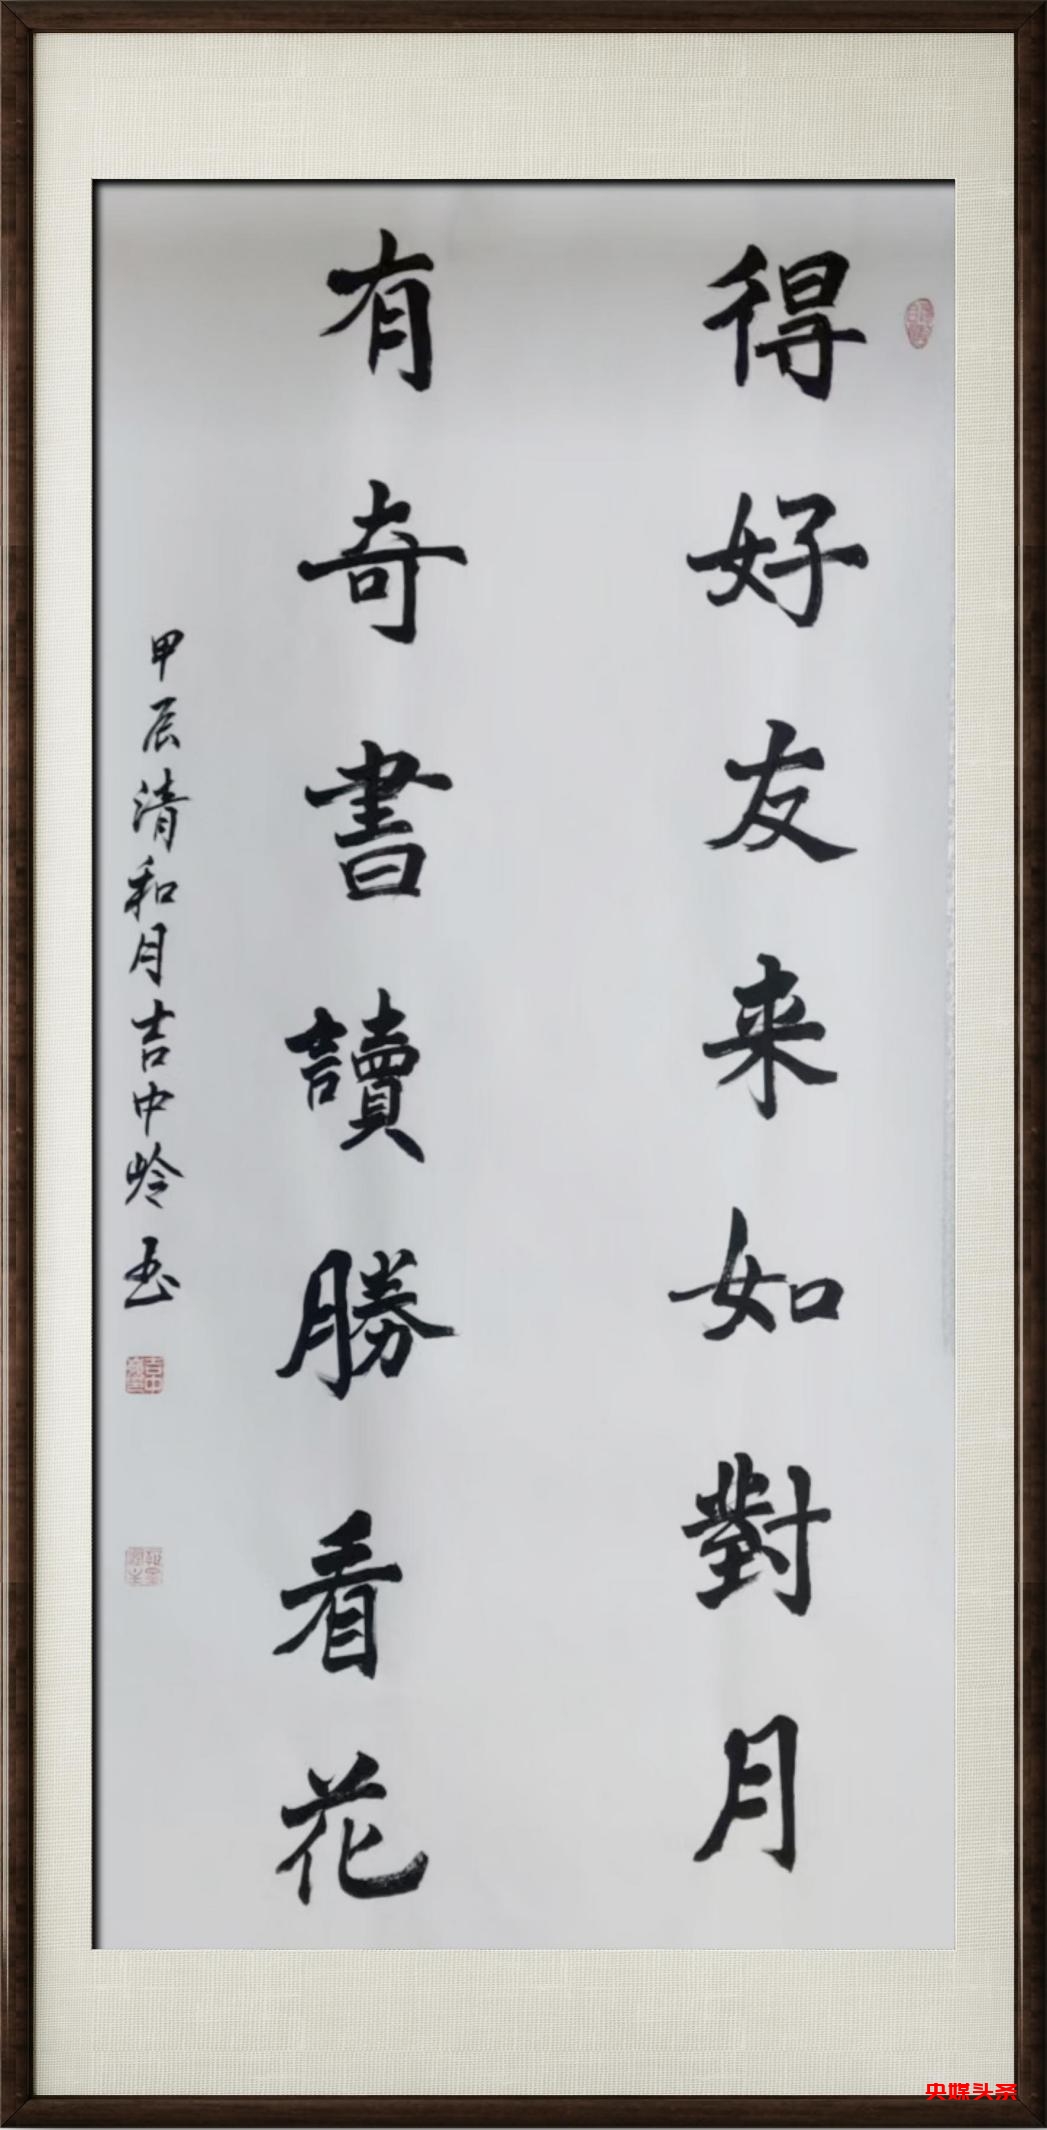 得好友来如對月
有奇書讀勝看花
甲辰清和月吉中蛉书
央媒头条